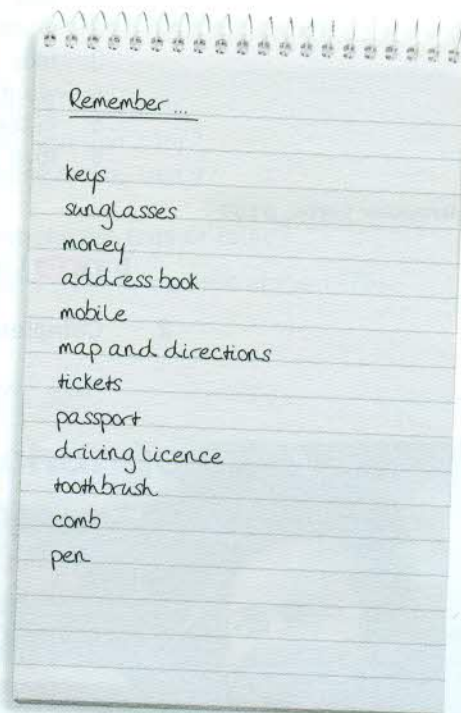 Remember...
keys
sunglasses
money
address book
mobile
map and directions
tickets
passport
driving licence
toothbrush
comb
pen